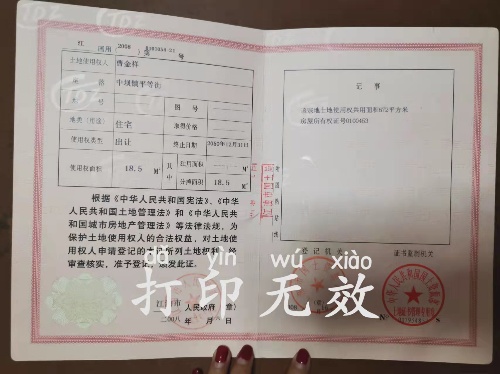 土地使用权人 曹金祥
座 落 牛坝镇平等街
地 号 图 号
地类（用途） 住宅 取得价格
使用权类型 出让 终止日期
使用权面积 18.5 M² 其中 独用面积 M²
分摊面积 18.5 M²
根据《中华人民共和国宪法》、《中华
人民共和国土地管理法》和《中华人民共
和国城市房地产管理法》等法律法规，为
保护土地使用权人的合法权益，对土地使
用权人申请登记的本证所列土地权利，经
审查核实，准予登记，颁发此证。
人民政府（章）
记 事
该宗地土地使用权共用面积672平方米
房屋所有权证号0100463
登 记 机 关
证书监制机关
dǎ yìn wú xiào
打印无效